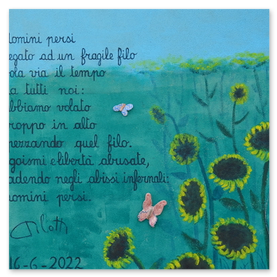 omini persi
egato ad un fragile filo
ola via il tempo
a tutti noi:
bbiamo volato
roppo in alto
pezzando quel filo.
goismi e libertà abusate,
adendo negli abissi infernali
omini persi.
16-6-2022